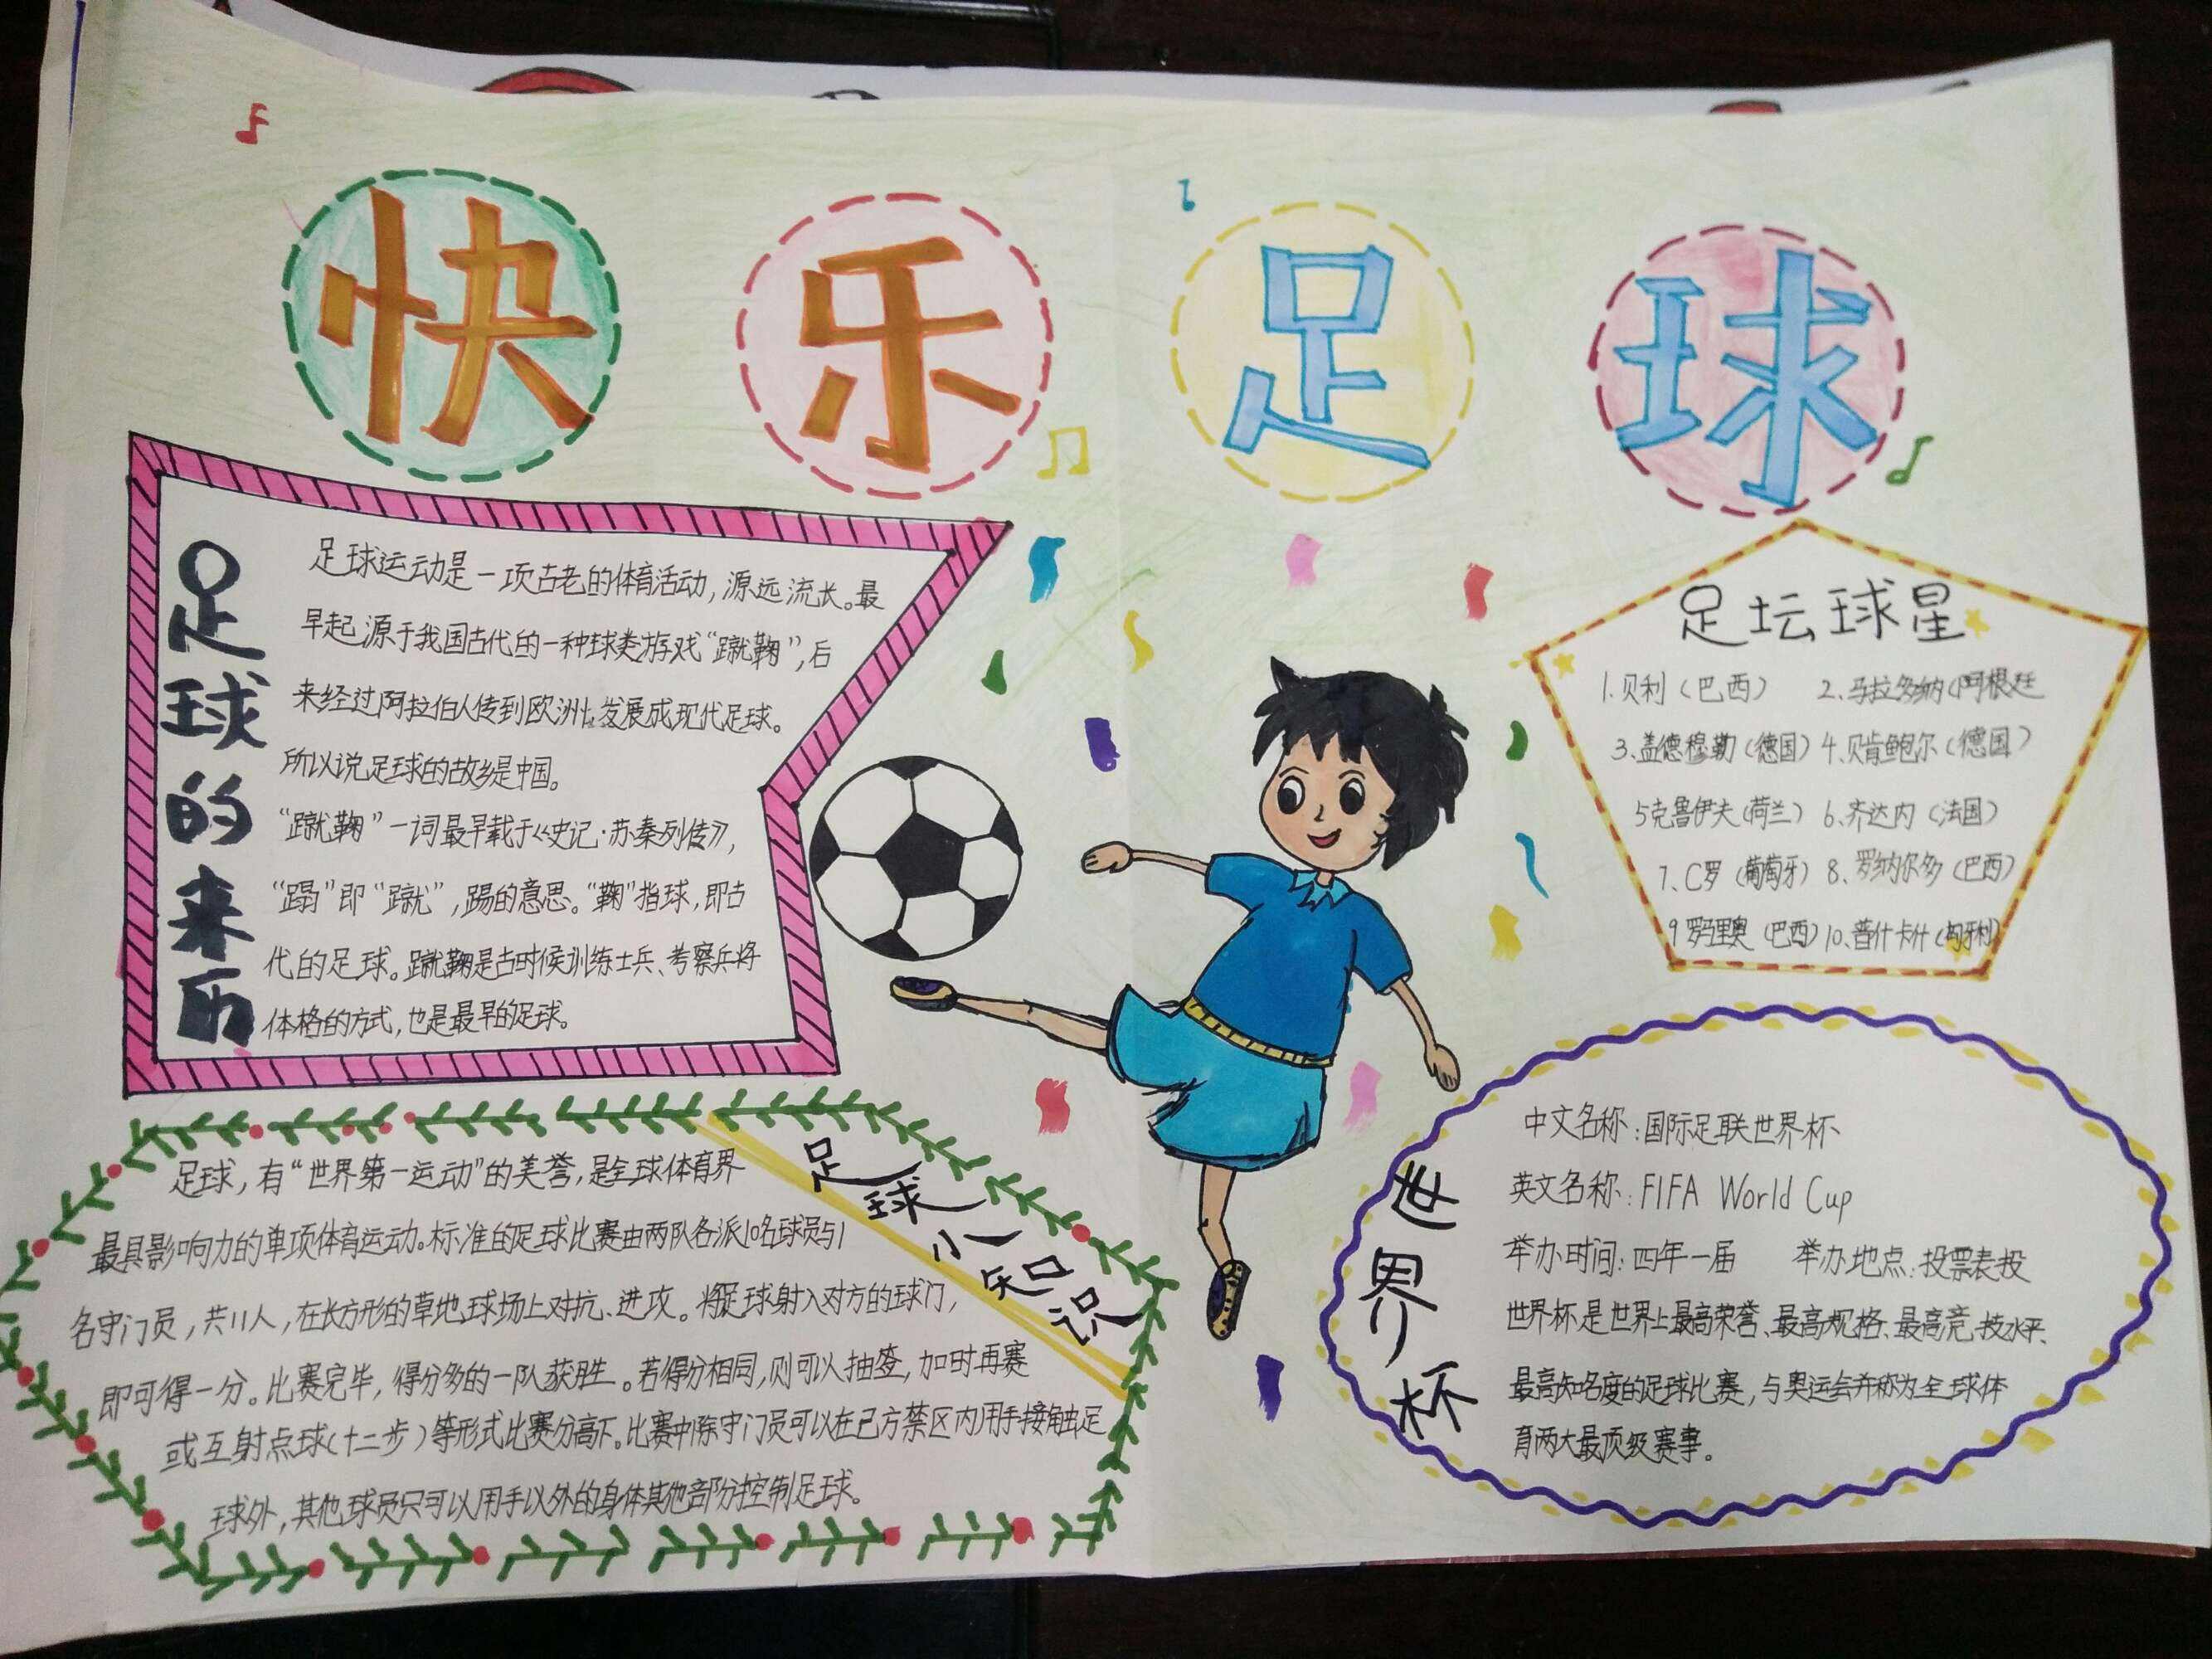 快乐足球
足球的来历
足球运动是一项古老的体育活动,源远流长。最
早起源于我国古代的一种球类游戏“蹴鞠”,后
来经过阿拉伯人传到欧洲,发展成现代足球。
所以说足球的故乡是中国。
“蹴鞠”一词最早载于《史记·苏秦列传》,
“蹋”即“蹴”,踢的意思。“鞠”指球,即古
代的足球。蹴鞠是古时候训练士兵、考察兵将
体格的方式,也是最早的足球。
足坛球星
1.贝利(巴西) 2.马拉多纳(阿根廷
3.盖德穆勒(德国) 4.贝肯鲍尔(德国)
5克鲁伊夫(荷兰) 6.齐达内(法国)
7、C罗(葡萄牙) 8、罗纳尔多(巴西)
9罗玛里奥(巴西) 10、普什卡什(匈牙利)
足球小知识
足球,有“世界第一运动”的美誉,是全球体育界
最具影响力的单项体育运动。标准的足球比赛由两队各派10名球员与1
名守门员,共11人,在长方形的草地球场上对抗、进攻。将足球射入对方的球门,
即可得一分。比赛完毕,得分多的一队获胜。若得分相同,则可以抽签,加时再赛
或互射点球(十二步)等形式比赛分高下。比赛中除守门员可以在己方禁区内用手接触足
球外,其他球员只可以用手以外的身体其他部分控制足球。
世界杯
中文名称:国际足联世界杯
英文名称:FIFA World Cup
举办时间:四年一届 举办地点:投票表投
世界杯是世界上最高荣誉、最高规格、最高竞技水平、
最高知名度的足球比赛,与奥运会并称为全球体
育两大最顶级赛事。